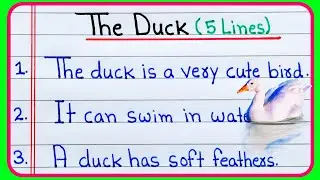 The Duck (5 Lines)
1. The duck is a very cute bird.
2. It can swim in
3. A duck has soft feathers.